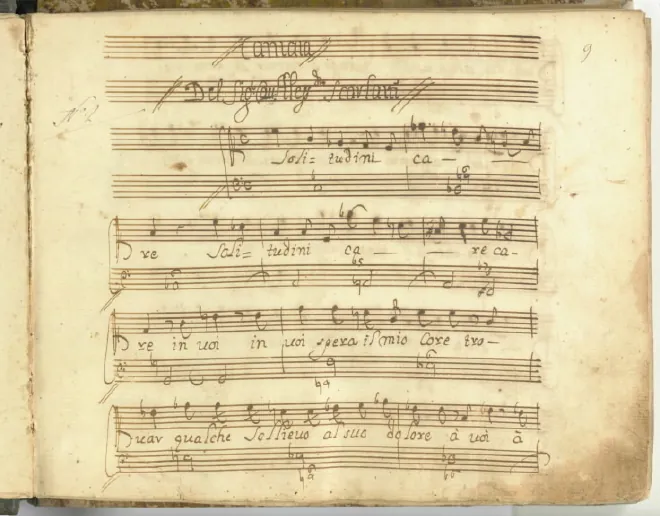 Cantata
9
Del Sig.r Scarlatti
Soli= tudini ca -
re Soli= tudini ca - re ca-
re in voi in voi spera il mio Core tro-
var qualche Sollievo al suo dolore à voi à